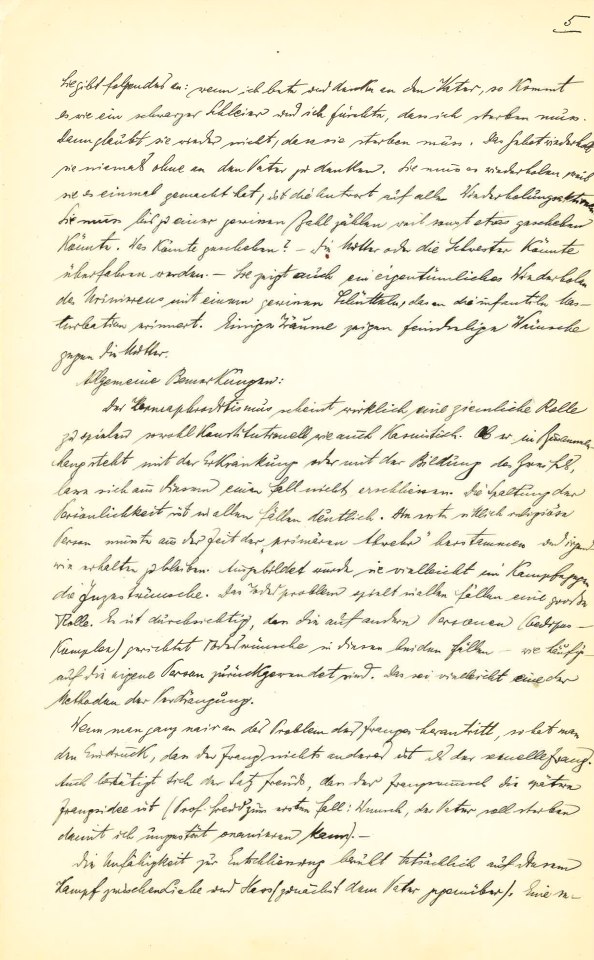 5
Sie gibt folgendes an: wenn ich bete und denke an den Vater, so kommt
es wie ein schwarzer Schleier und ich fürchte, dass ich sterben muss.
Dann glaubt sie wieder nicht, dass sie sterben muss. Das Gebet wiederholt
sie niemals ohne an den Vater zu denken. Sie muss es wiederholen weil
sie es einmal gemacht hat, ist die Antwort auf allen
Sie muss bis zu einer gewissen Zahl zählen weil sonst etwas geschehen
könnte. Was könnte geschehen? – Die Mutter oder die Schwester könnte
überfahren werden. – Sie zeigt auch ein eigentümliches Wiederholen
des Urinierens mit einem gewissen Schütteln, das an die infantile Mas-
turbation erinnert. Einige Träume zeigen feindselige Wünsche
gegen die Mutter.
Allgemeine Bemerkungen:
Der Hermaphroditismus scheint wirklich eine ziemliche Rolle
zu spielen sowohl Konstitutionell wie auch Ob er in Zusammen-
hang steht mit der Erkrankung oder mit der Bildung des
lässt sich aus diesem einen Fall nicht erschliessen. Die Spaltung der
Persönlichkeit ist in allen Fällen deutlich. Die erste sittlich religiöse
Person müsste aus der Zeit der „primären Abwehr" herstammen und irgend-
wie erhalten geblieben. Ausgebildet wurde sie vielleicht im Kampfe gegen
die Das Todesproblem spielt in allen Fällen eine grosse
Rolle. Es ist durchsichtig, dass die auf andern Personen (Oedipus-
Komplex) gerichtet Todeswünsche in diesen beiden Fällen – wie häufig
auf die eigene Person zurückgewendet sind. Das sei vielleicht eine der
Methoden der Verdrängung.
Wenn man ganz naiv an das Problem des Zwanges herantritt, so hat man
den Eindruck, dass der Zwang nichts anderes ist als der sexuelle Zwang.
Auch bestätigt sich der Satz Freuds, dass der Zwangswunsch die spätere
Zwangsidee ist (Prof. Freud zum ersten Fall: Wunsch, der Vater soll sterben
damit ich ungestört onanieren kann). –
Die Unfähigkeit zur Entschliessung beruht tatsächlich auf diesem
Kampf zwischen Liebe und Hass (zunächst dem Vater gegenüber). Eine